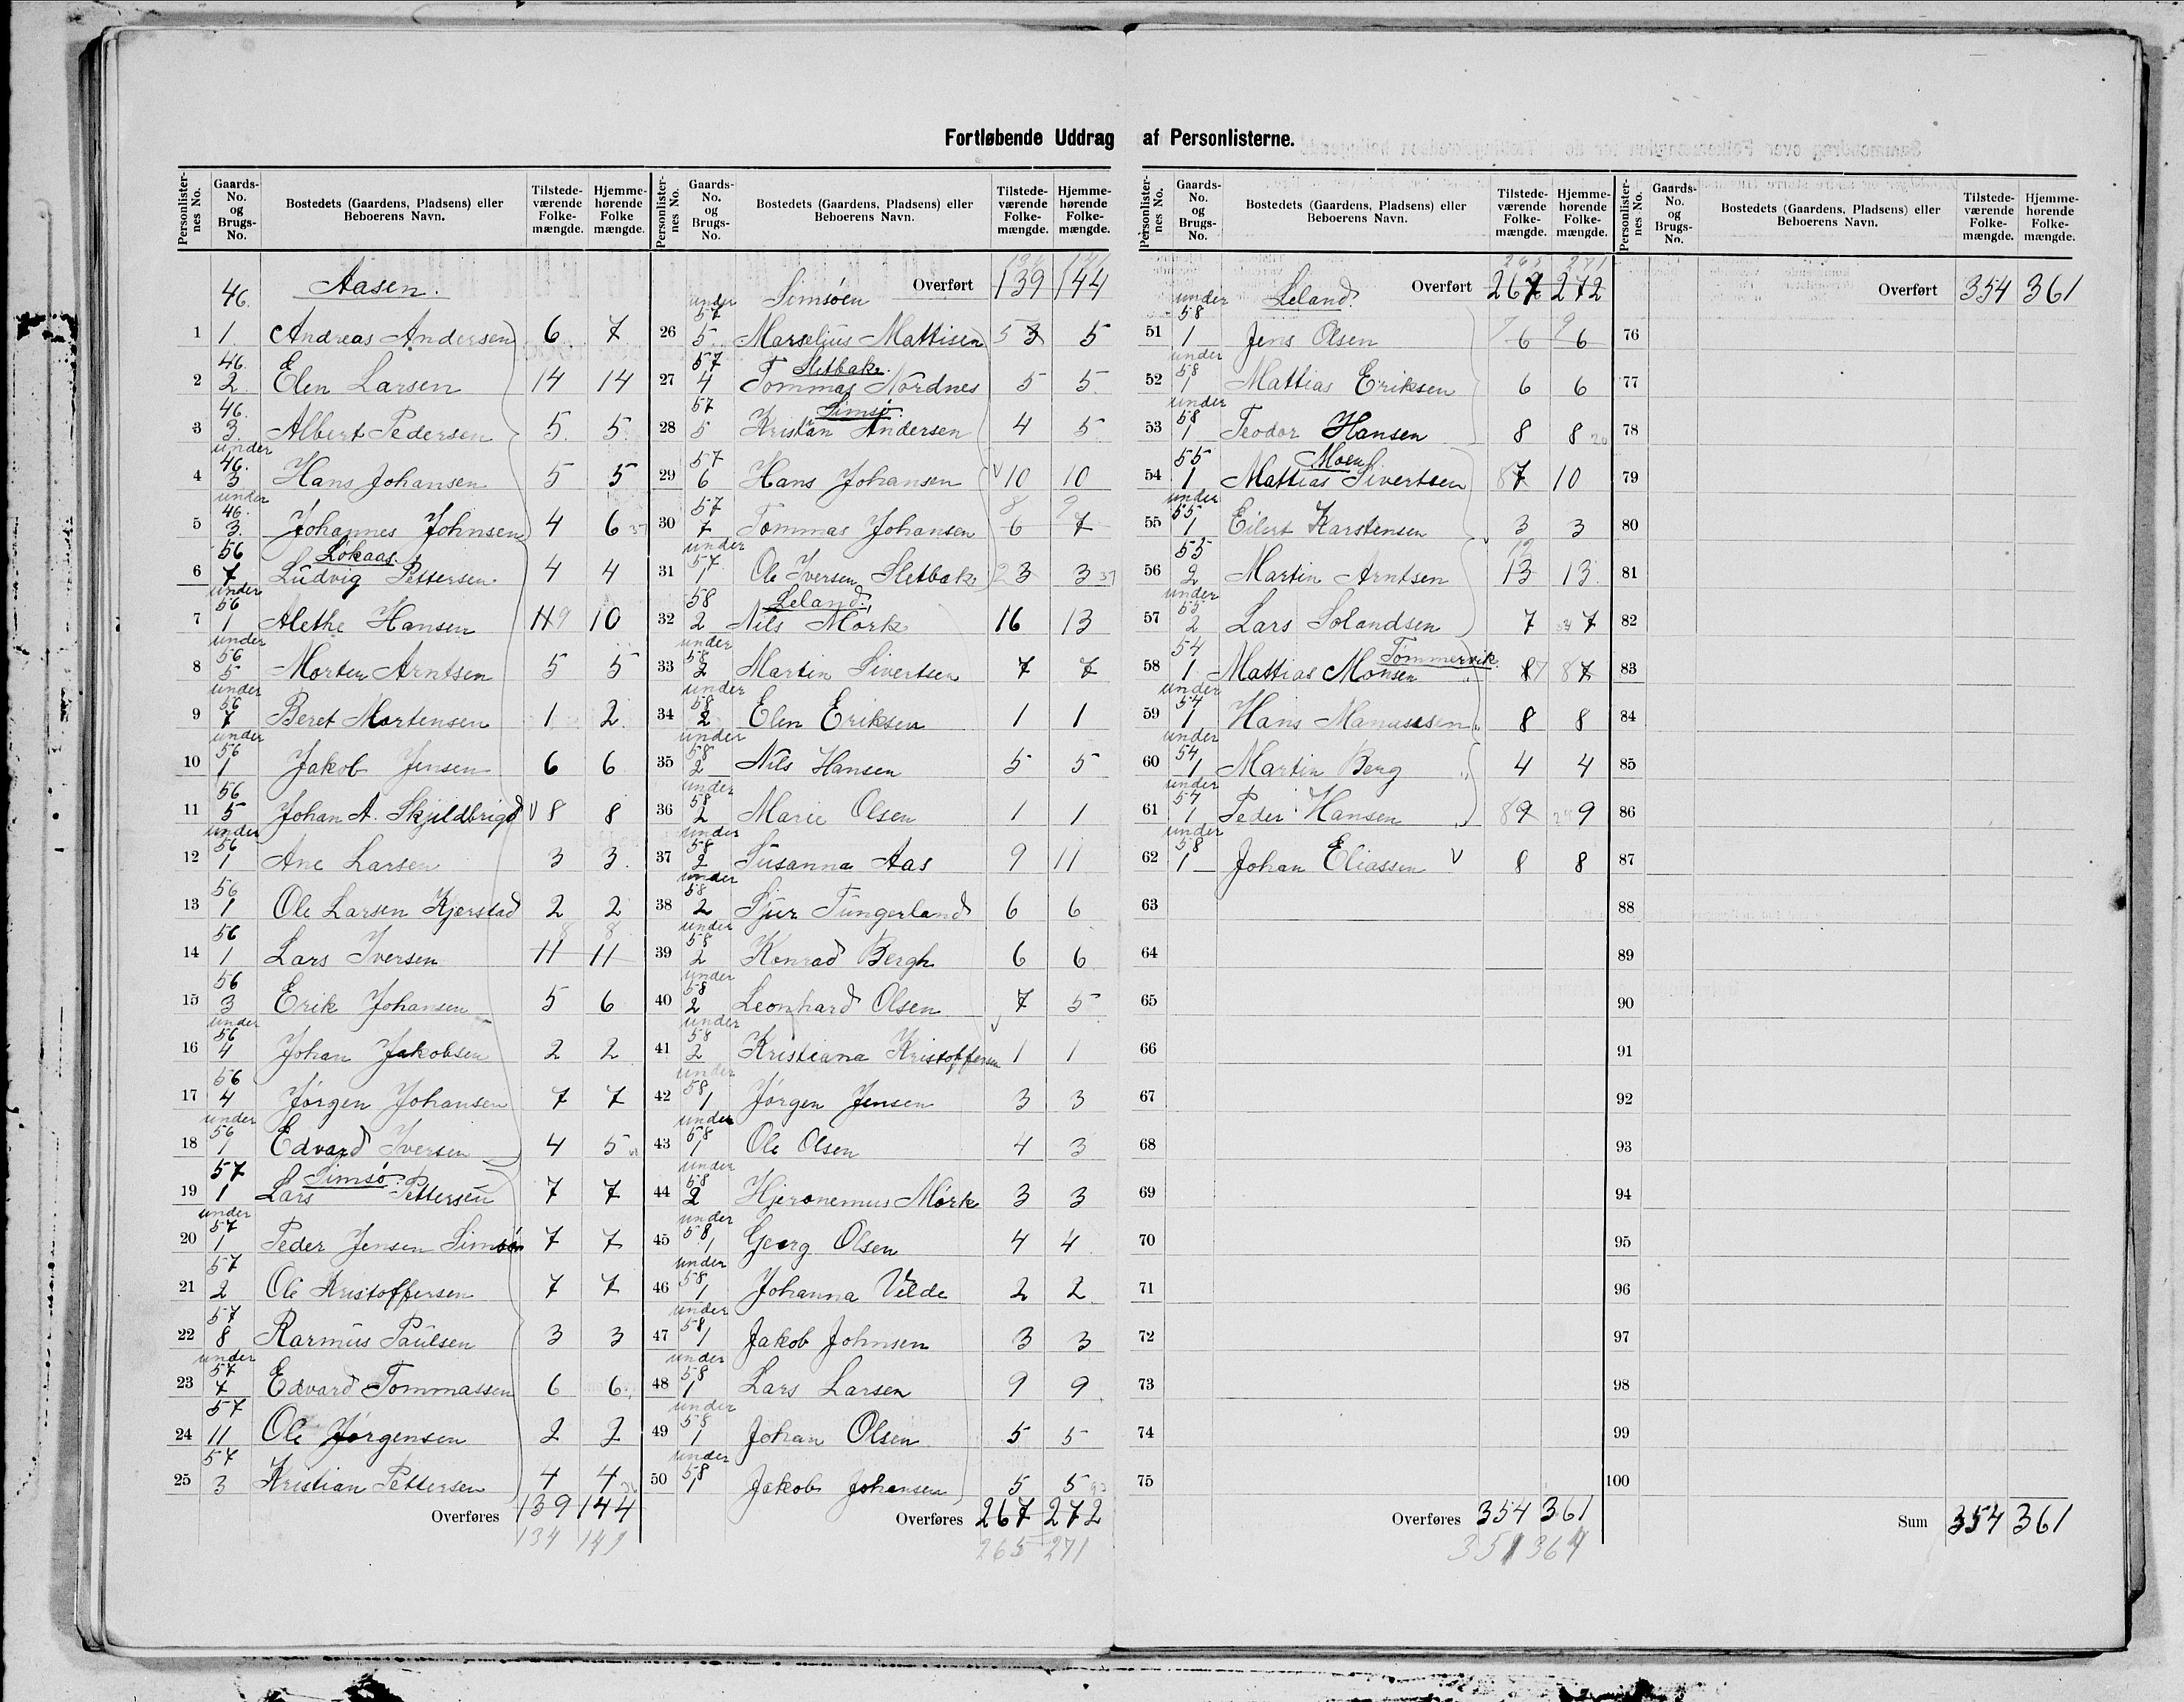 Fortløbende Uddrag af Personlisterne.
Personlisternes No. Gaards-No. og Brugs-No. Bostedets (Gaardens, Pladsens) eller Beboerens Navn. Tilstedeværende Folkemængde. Hjemmehørende Folkemængde.
46. Aasen.
1 1 Andreas Andersen 6 7
46.
2 2. Elen Larsen 14 14
46.
3 3. Albert Pedersen 5. 5.
under 46.
4 3 Hans Johansen 5 5
under 46.
5 3. Johannes Johnsen 4 6
56 Løkaas.
6 7 Ludvig Pettersen. 4 4
under 56
7 1 Alethe Hansen 11 9 10
under 56
8 5 Morten Arntsen 5 5
under 56
9 7 Beret Mortensen 1 2
under 56
10 1 Jakob Jensen 6 6
56
11 5 Johan A. Skjeldbrigd 8 8
under 56
12 1 Ane Larsen 3 3.
56
13 1 Ole Larsen Kjerstad 2 2
56 8 8
14 1 Lars Iversen 11 11
56
15 3 Erik Johansen 5 6
under 56
16 4 Johan Jakobsen 2 2
56
17 4 Jørgen Johansen 7 7
under 56
18 1 Edvard Iversen 4 5
57 Simsø.
19 1 Lars Pettersen 7 7
under 57
20 1 Peder Jensen Simsøen 7 7
57
21 2 Ole Kristoffersen 7 7
57
22 8 Rasmus Paulsen 3 3
under 57
23 7 Edvard Tommassen 6 6
57
24 11 Ole Jørgensen 2 2
57
25 3 Kristian Pettersen 4 4
Overføres 139 144
134 141
Personlisternes No. Gaards-No. og Brugs-No. Bostedets (Gaardens, Pladsens) eller Beboerens Navn. Tilstedeværende Folkemængde. Hjemmehørende Folkemængde.
134 141
Simsøen Overført 139 144
under 57
26 5. Marselius Mattisen 5 3 5
57 Sletbak.
27 4 Tommas Nordnes 5 5
57 Simsø.
28 5 Kristian Andersen 4 5
57
29 6 Hans Johansen 10 10
57 8 9
30 7 Tommas Johansen 6 7
under 57
31 1 Ole Iversen Sletbak 2 3 3 37
58 Leland.
32 2 Nils Mørk 16 13
under 58
33 2 Martin Sivertsen 7 7
under 58
34 2 Elen Eriksen 1 1
under 58
35 2 Nils Hansen 5 5
under 58
36 2 Marie Olsen 1 1
under 58
37 2 Susanna Aas 9 11
under 58
38 2 Sjur Tungerland 6 6
under 58
39 2 Konrad Bergh 6 6
under 58
40 2 Leonhard Olsen 7 5
under 58
41 2 Kristiana Kristoffersen 1 1
under 58
42 1 Jørgen Jensen 3 3
under 58
43 1 Ole Olsen 4 3
under 58
44 2 Hjeronemus Mørk 3 3
under 58
45 1 Georg Olsen 4 4
under 58
46 1 Johanna Velde 2 2
under 58
47 1 Jakob Johnsen 3 3
under 58
48 1 Lars Larsen 9 9
under 58
49 1 Johan Olsen 5 5
under 58
50 1 Jakob Johansen 5 5
Overføres 267 272
265 271
Personlisternes No. Gaards-No. og Brugs-No. Bostedets (Gaardens, Pladsens) eller Beboerens Navn. Tilstedeværende Folkemængde. Hjemmehørende Folkemængde.
265 271
Leland. Overført 267 272
under 58
51 1 Jens Olsen 7 6 9 6
under 58
52 1 Mattias Eriksen 6 6
under 58
53 1 Teodor Hansen 8 8 20
55 Moen
54 1 Mattias Sivertsen 8 7 10
under 55
55 1 Eilert Karstensen 3 3
55 12
56 2 Martin Arntsen 13 13.
under 55
57 2 Lars Solandsen 7 7
54 Tømmervik.
58 1 Mattias Monsen " 8 7 8 7
under 54
59 1 Hans Manussen " 8 8
under 54
60 1 Martin Berg " 4 4
under 54
61 1 Peder Hansen " 8 9 9
under 58
62 1 Johan Eliassen 8 8
63
64
65
66
67
68
69
70
71
72
73
74
75
Overføres 354 361
351 364
Personlisternes No. Gaards-No. og Brugs-No. Bostedets (Gaardens, Pladsens) eller Beboerens Navn. Tilstedeværende Folkemængde. Hjemmehørende Folkemængde.
Overført 354 361
76
77
78
79
80
81
82
83
84
85
86
87
88
89
90
91
92
93
94
95
96
97
98
99
100
Sum 354 361